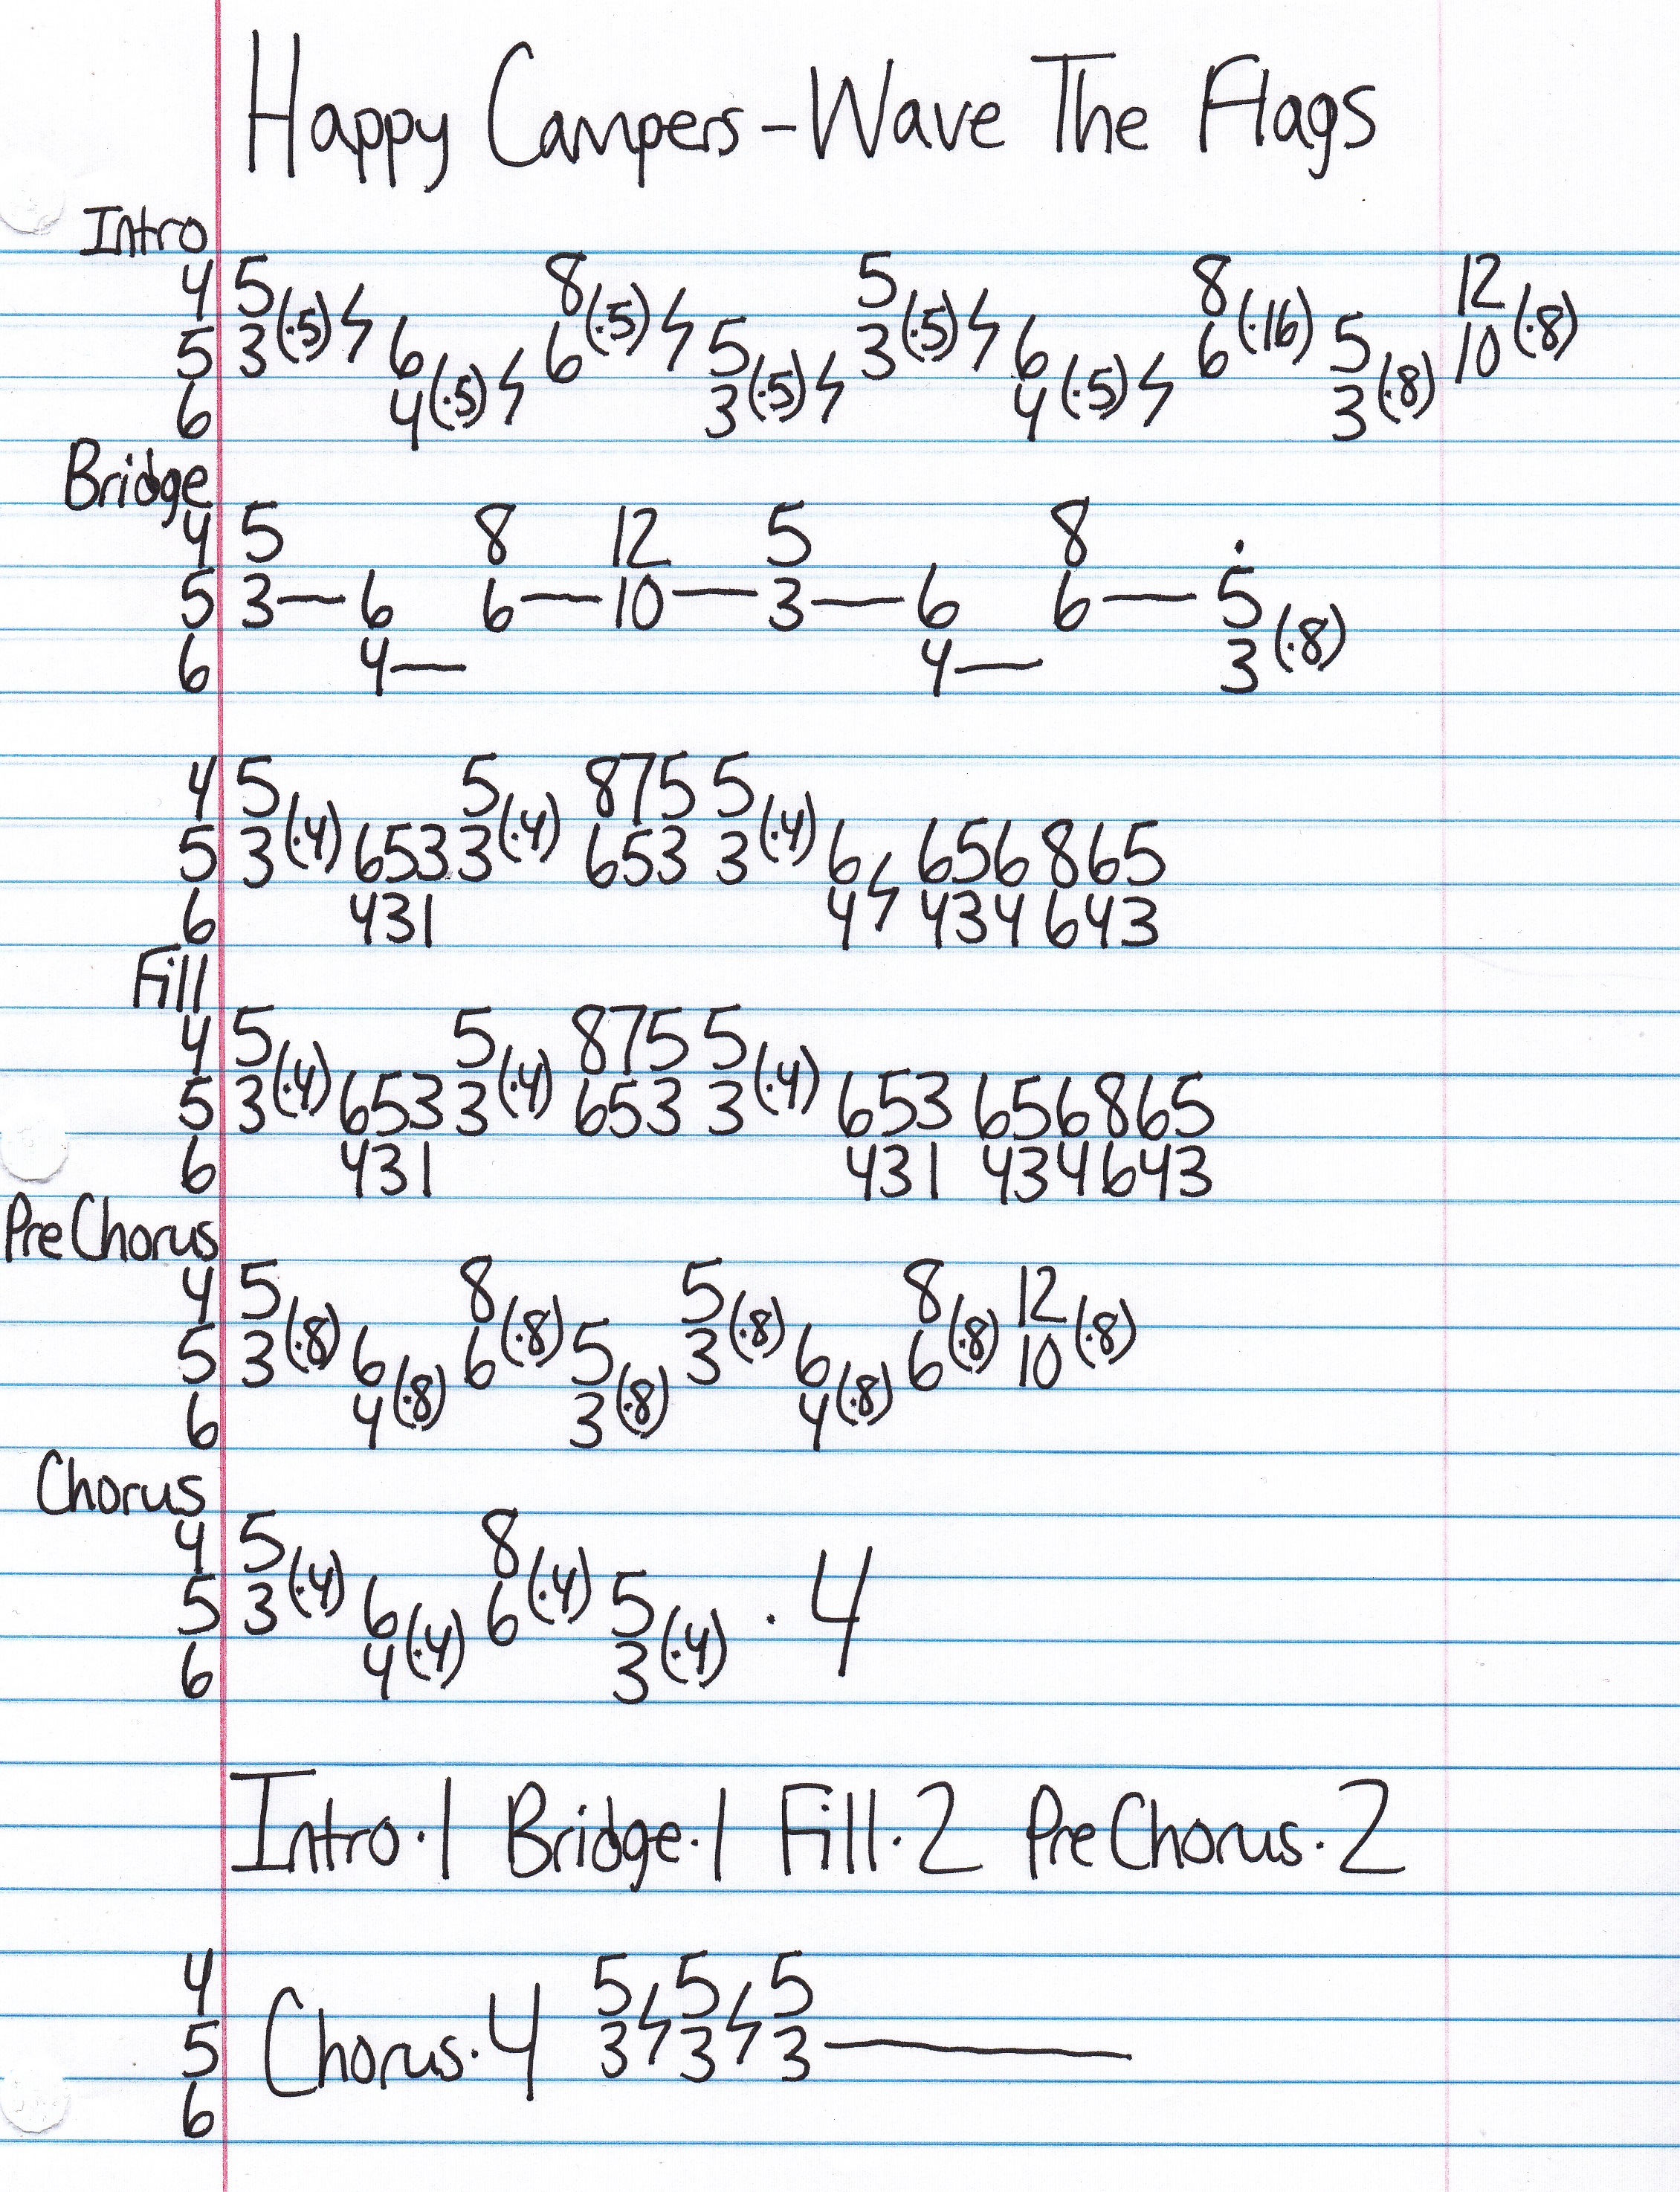 Happy Campers - Wave The Flags
Intro
4 5 8 5 8 12
5 3(·5)ϟ 6 6(·5)ϟ 5 3(·5)ϟ 6 6(·16) 5 10(·8)
6 4(·5)ϟ 3(·5)ϟ 4(·5)ϟ 3(·8)
Bridge
4 5 8 12 5 8 .
5 3— 6 6—10—3— 6 6— 5
6 4— 4— 3(·8)
4 5 5 875 5
5 3(·4) 653 3(·4) 653 3(·4) 6 656 865
6 431 4ϟ 434 643
Fill
4 5 5 875 5
5 3(·4) 653 3(·4) 653 3(·4) 653 656865
6 431 431 434643
PreChorus
4 5 8 5 8 12
5 3(·8) 6 6(·8) 5 3(·8) 6 6(·8) 10(·8)
6 4(·8) 3(·8) 4(·8)
Chorus
4 5 8
5 3(·4) 6 6(·4) 5 · 4
6 4(·4) 3(·4)
Intro·1 Bridge·1 Fill·2 PreChorus·2
4 5ϟ5ϟ5
5 Chorus·4 3 3 3—
6